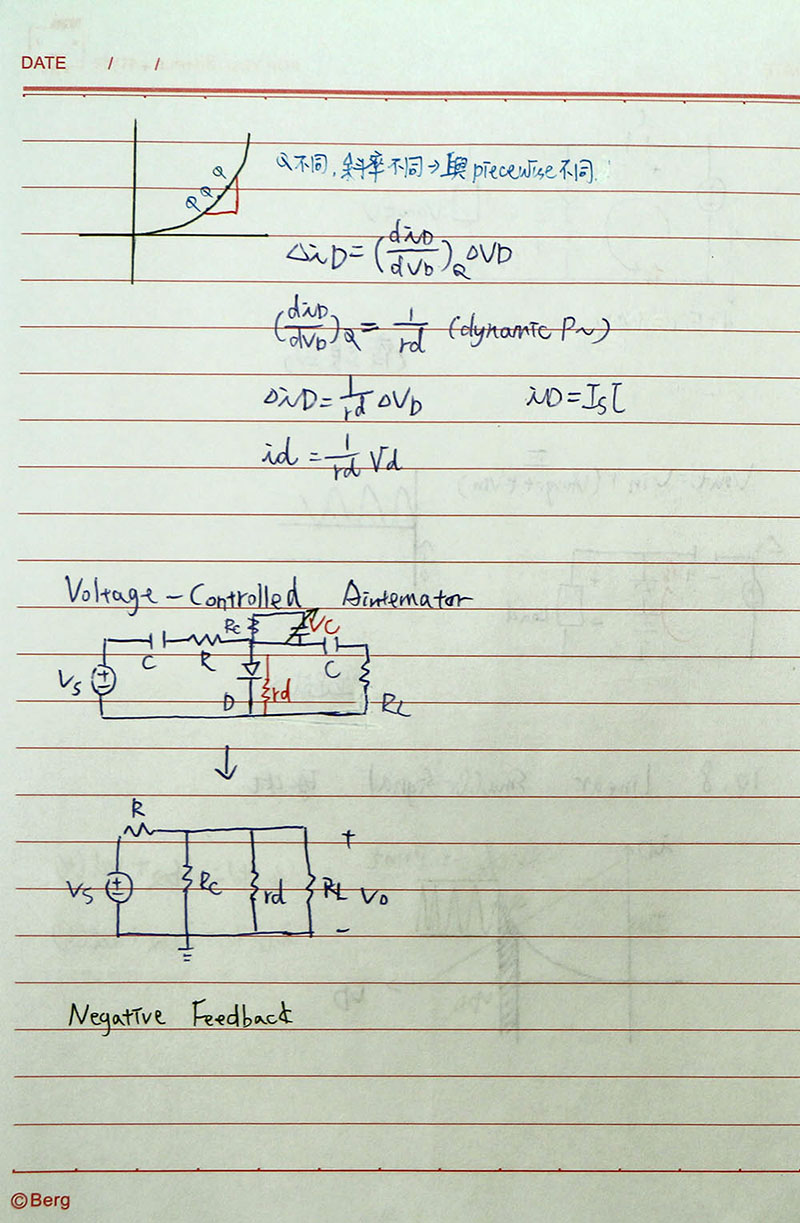 DATE / /
Q Q Q
Q不同,斜率不同→與piecewise不同.
ΔiD=(diD/dVD)Q ΔVD
(diD/dVD)Q = 1/rd (dynamic P~)
ΔiD=1/rd ΔVD iD=Is[
id=1/rd Vd
Voltage-Controlled Aintemator
Rc VC
C R C
Vs + - D rd RL
↓
R
Vs + - Rc rd RL + Vo -
Negative Feedback
©Berg